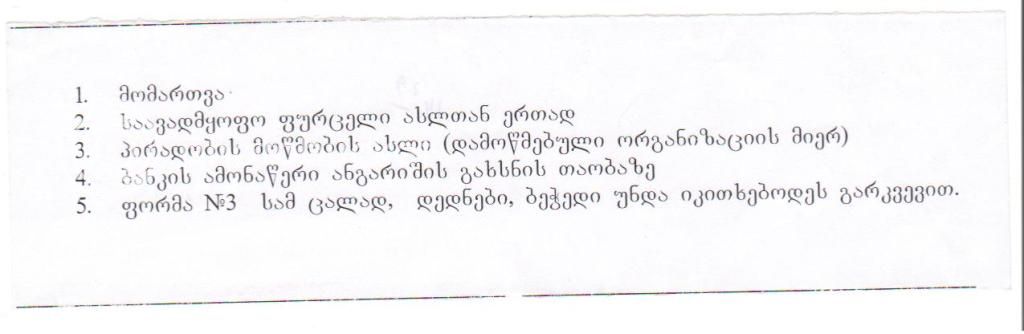 1. მომართვა
2. საავადმყოფო ფურცელი ასლთან ერთად
3. პირადობის მოწმობის ასლი (დამოწმებული ორგანიზაციის მიერ)
4. ბანკის ამონაწერი ანგარიშის გახსნის თაობაზე
5. ფორმა №3 სამ ცალად, დედნები, ბეჭედი უნდა იკითხებოდეს გარკვევით.